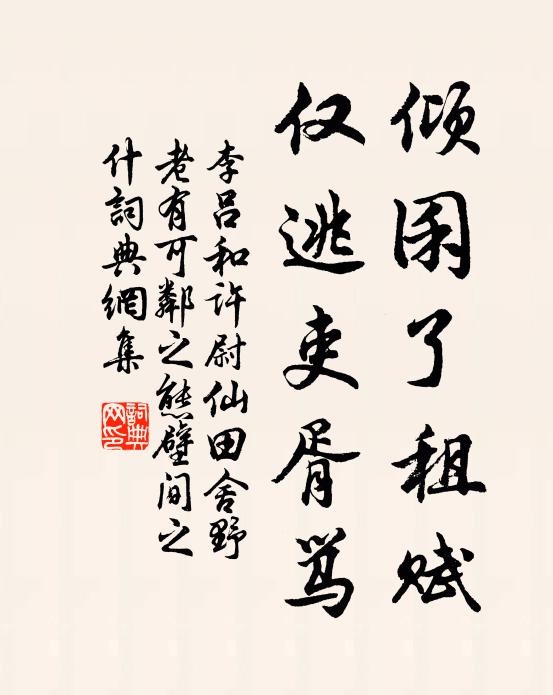 倾囷了租赋
仅逃吏胥骂
李吕和许尉仙田舍野
老有可鄰之態壁间之
什詞典網集
詞典网印